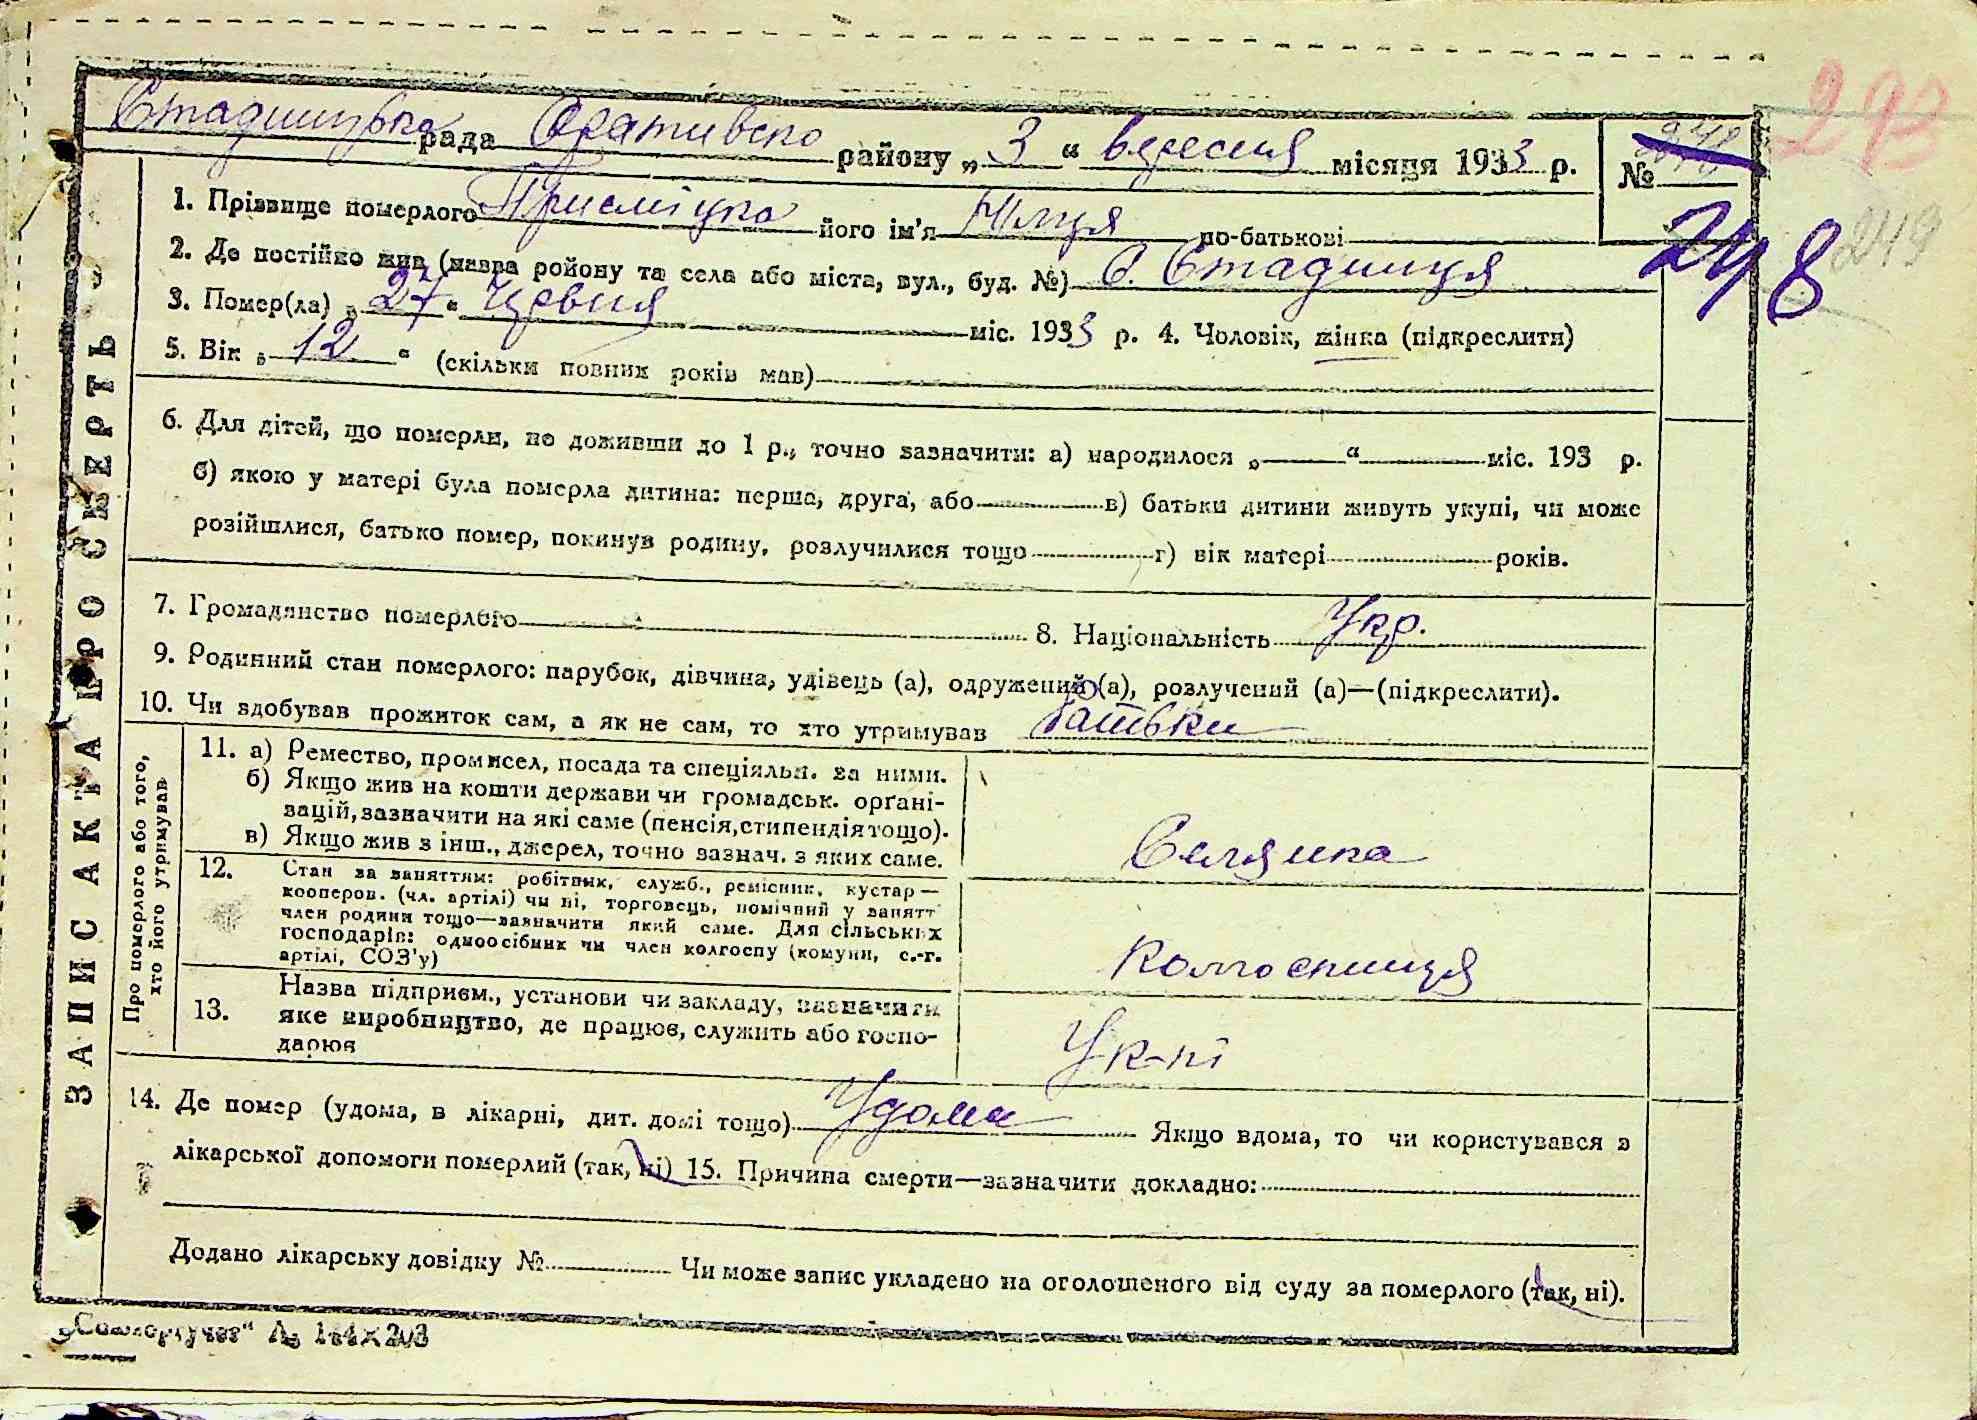 293
Стадницька рада Оратівсько району „ 3 “ вересня місяця 1933 р.
№
248
249
1. Прізвище померлого його ім'я по-батькові
2. Де постійно жив (назва ройону та села або міста, вул., буд. №) С. Стадниця
3. Помер(ла) „ 27 “ червня міс. 1933 р. 4. Чоловік, жінка (підкреслити)
5. Вік „ 12 “ (скільки повних років мав)
6. Для дітей, що померли, не доживши до 1 р., точно зазначити: а) народилося „ “ міс. 193 р.
б) якою у матері була померла дитина: перша, друга, або в) батьки дитини живуть укупі, чи може
розійшлися, батько помер, покинув родину, розлучилися тощо г) вік матері років.
7. Громадянство померлого 8. Національність Укр.
9. Родинний стан померлого: парубок, дівчина, удівець (а), одружений (а), розлучений (а)—(підкреслити).
10. Чи здобував прожиток сам, а як не сам, то хто утримував батьки
ЗАПИС АКТА ПРО СМЕРТЬ
Про померлого або того,
хто його утримував
11. а) Ремество, промисел, посада та спеціяльн. за ними.
б) Якщо жив на кошти держави чи громадськ. орґані-
зацій, зазначити на які саме (пенсія, стипендія тощо).
в) Якщо жив з інш., джерел, точно зазнач. з яких саме.
Селянка
12. Стан за заняттям: робітник, служб., ремісник, кустар—
кооперов. (чл. артілі) чи ні, торговець, помічний у занятт
член родини тощо—зазначити який саме. Для сільських
господарів: одноосібник чи член колгоспу (комуни, с.-г.
артілі, СОЗ'у)
Колгоспниця
13. Назва підприєм., установи чи закладу, зазначити
яке виробництво, де працює, служить або госпо-
дарює
У к-пі
14. Де помер (удома, в лікарні, дит. домі тощо) Удома Якщо вдома, то чи користувався з
лікарської допомоги померлий (так, ні) 15. Причина смерти—зазначити докладно:
Додано лікарську довідку № Чи може запис укладено на оголошеного від суду за померлого (так, ні).
144×203